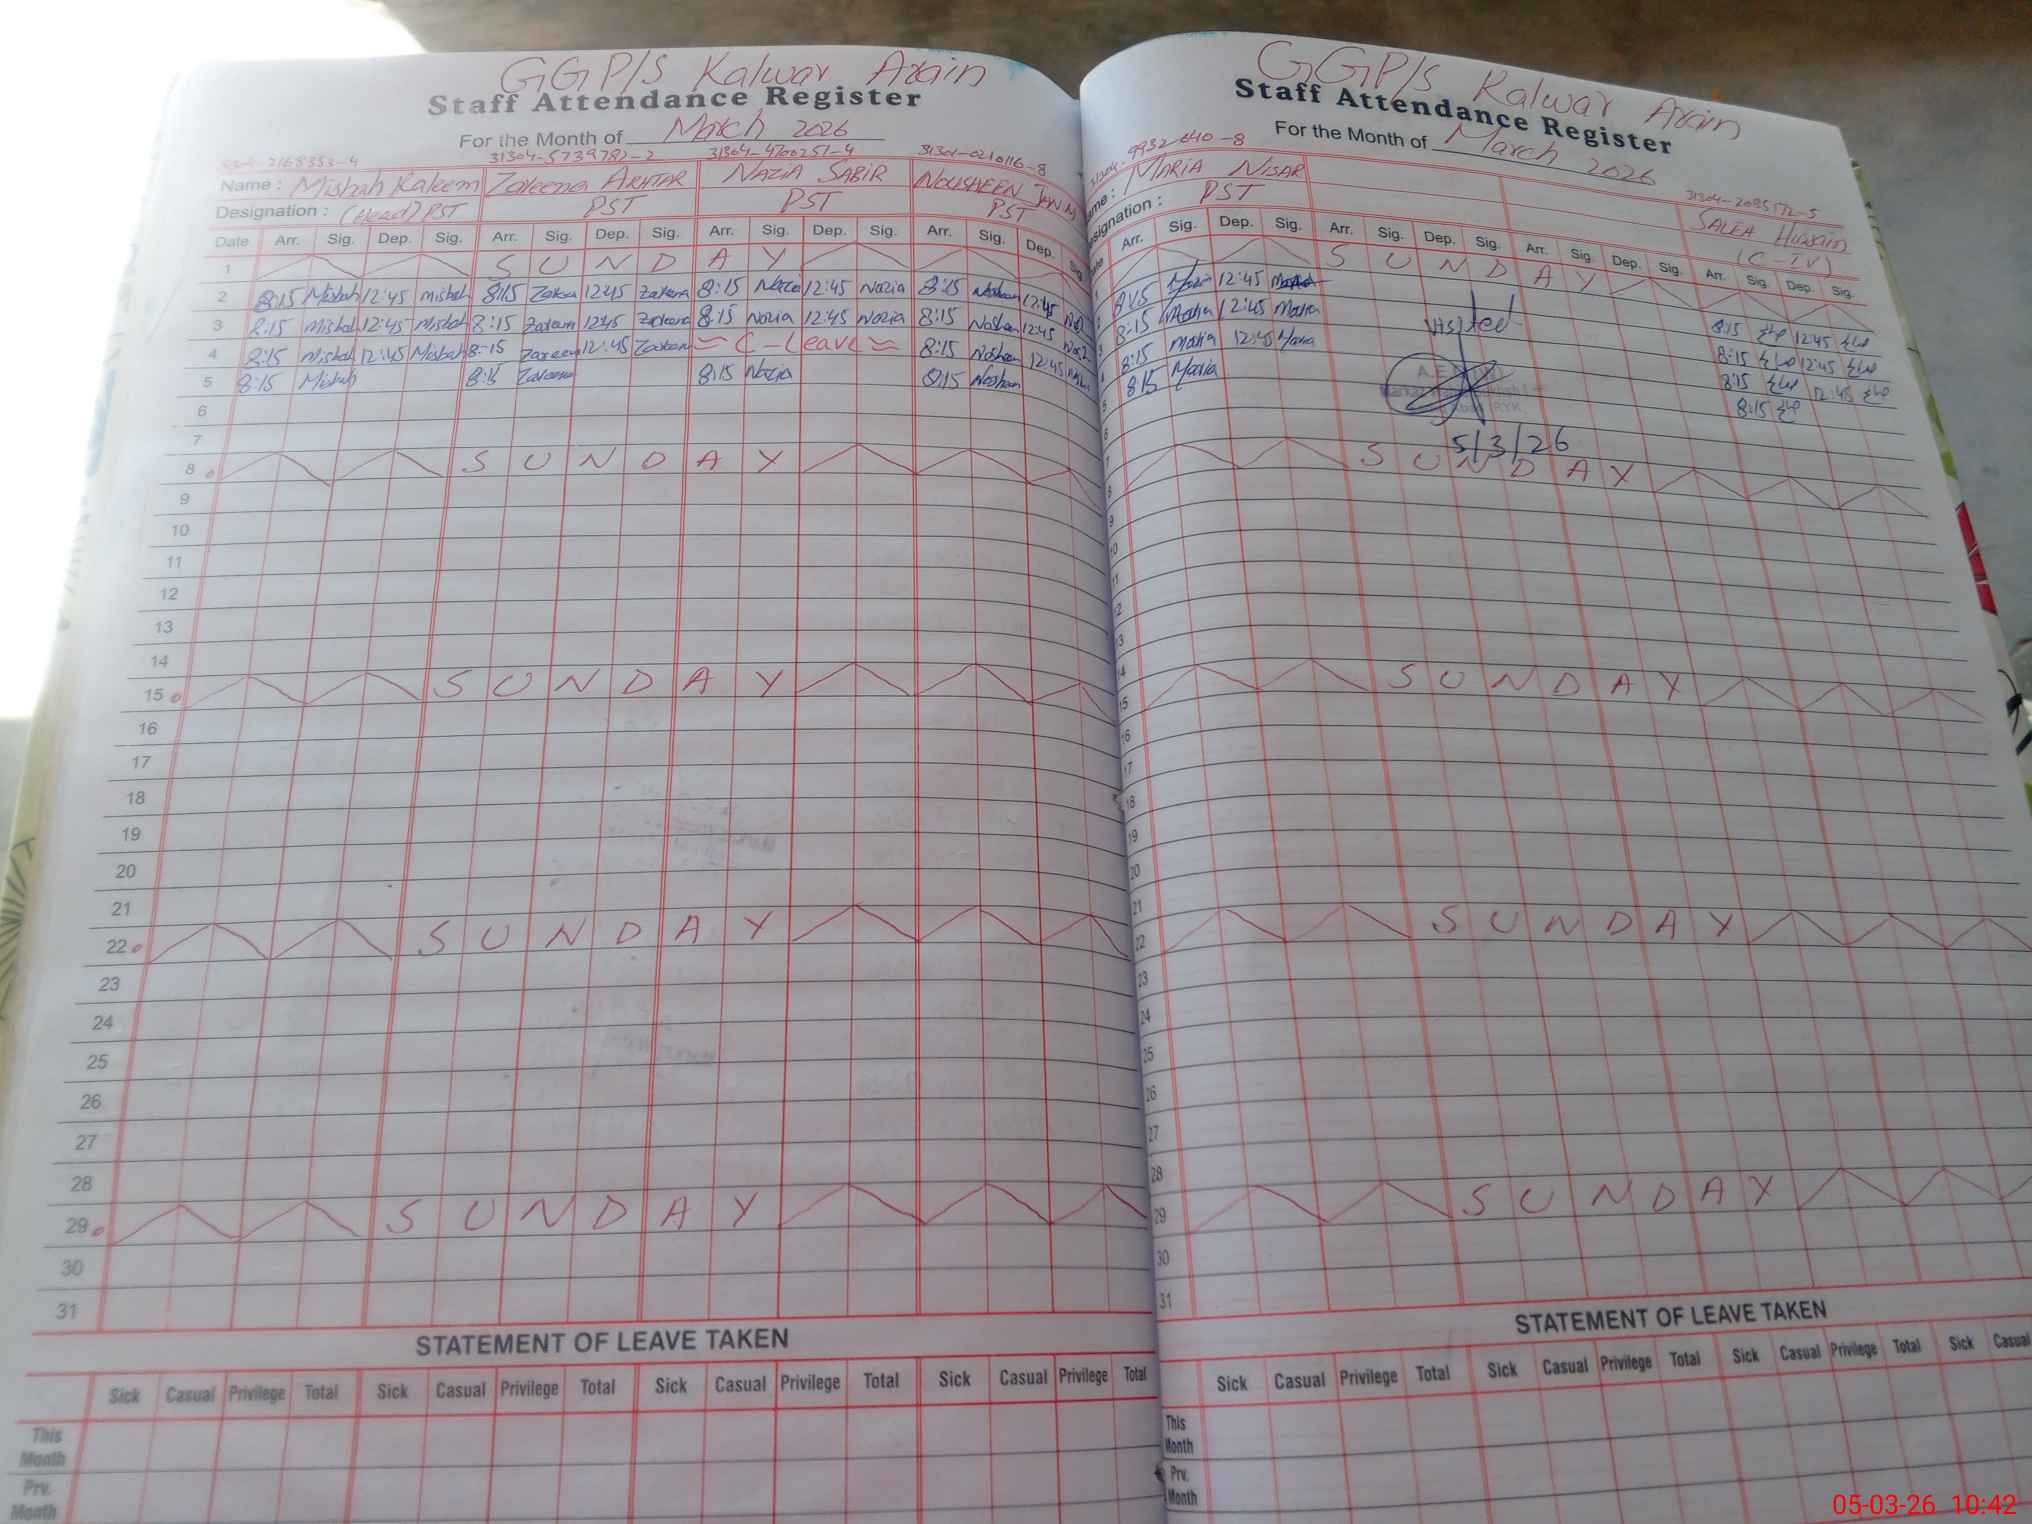 GGP/S Kalwar Arain
Staff Attendance Register
For the Month of March 2026
2168353-4 31304-5739782-2 31304-4700257-4 31304-0210116-8
Name: Misbah Kaleem Zareena AKHTAR NAZIA SABIR NOUSHEEN
Designation: (Head) PST PST PST PST
Date Arr. Sig. Dep. Sig. Arr. Sig. Dep. Sig. Arr. Sig. Dep. Sig. Arr. Sig. Dep. Sig.
1 SUNDAY
2 8:15 Misbah 12:45 misbah 8:15 Zareena 12:45 Zareena 8:15 Nazia 12:45 Nazia 8:15 Nosheen 12:45
3 8:15 Misbah 12:45 Misbah 8:15 Zareena 12:45 Zareena 8:15 Nazia 12:45 Nazia 8:15 Nosheen 12:45
4 8:15 Misbah 12:45 Misbah 8:15 Zareena 12:45 Zareena C-Leave 8:15 Nosheen 12:45
5 8:15 Misbah 8:15 Zareena 8:15 Nazia 8:15 Nosheen
6
7
8 SUNDAY
9
10
11
12
13
14
15 SUNDAY
16
17
18
19
20
21
22 SUNDAY
23
24
25
26
27
28
29 SUNDAY
30
31
STATEMENT OF LEAVE TAKEN
Sick Casual Privilege Total Sick Casual Privilege Total Sick Casual Privilege Total Sick Casual Privilege Total
This Month
Prv. Month
GGP/S Kalwar Arain
Staff Attendance Register
For the Month of March 2026
31304-9932640-8 31304-2095572-5
Name: MARIA NISAR SALEH HUSSAIN
Designation: PST (C-IV)
Date Arr. Sig. Dep. Sig. Arr. Sig. Dep. Sig. Arr. Sig. Dep. Sig. Arr. Sig. Dep. Sig.
1 SUNDAY
2 8:15 Maria 12:45 Maria 8:15 12:45
3 8:15 Maria 12:45 Maria 8:15 12:45
4 8:15 Maria 12:45 Maria 8:15 12:45
5 8:15 Maria 8:15
Visited
5/3/26
6
7
8 SUNDAY
9
10
11
12
13
14
15 SUNDAY
16
17
18
19
20
21
22 SUNDAY
23
24
25
26
27
28
29 SUNDAY
30
31
STATEMENT OF LEAVE TAKEN
Sick Casual Privilege Total Sick Casual Privilege Total Sick Casual Privilege Total Sick Casual
This Month
Prv. Month
05-03-26 10:42